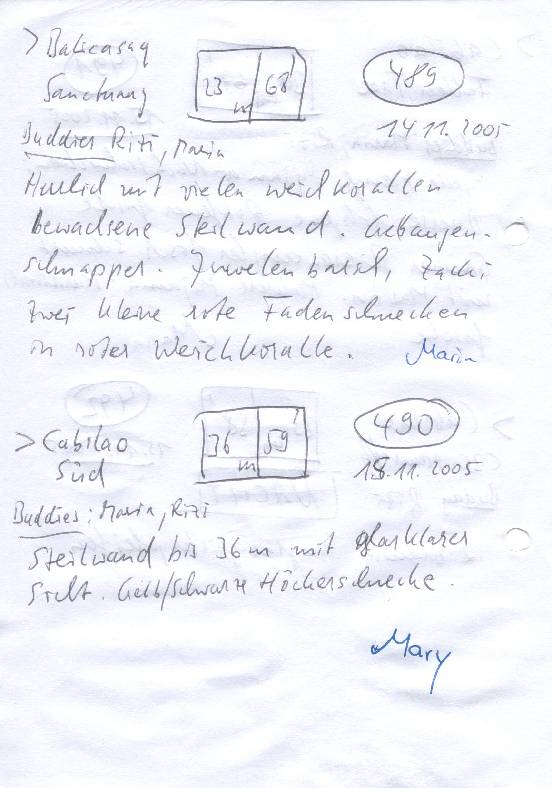 > Balicasag
Sanctuary
23 m 68'
489
14.11.2005
Buddies Rizi, Maria
Herrlich mit vielen Weichkorallen
bewachsene Steilwand. Gebangen-
schnapper. Juwelenbarsch, Zacki
Zwei kleine rote Fadenschnecken
in roter Weichkoralle. Maria
> Cabilao
Süd
36 m 59'
490
18.11.2005
Buddies: Maria, Rizi
Steilwand bis 36m mit glasklarer
Sicht. Gelb/Schwarze Höckerschnecke.
Mary